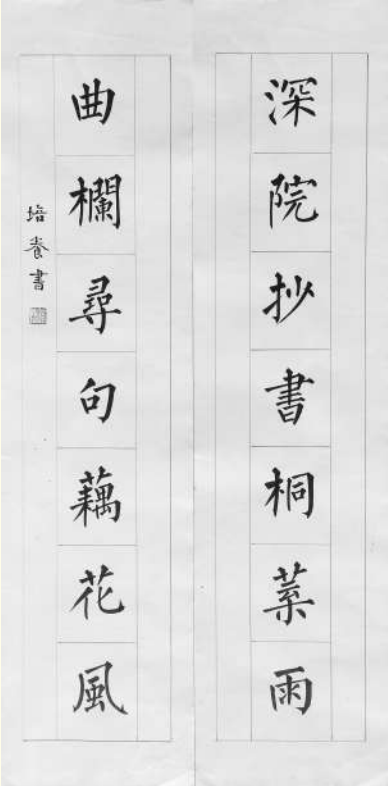 深院抄書桐葉雨
曲欄尋句藕花風
培養書